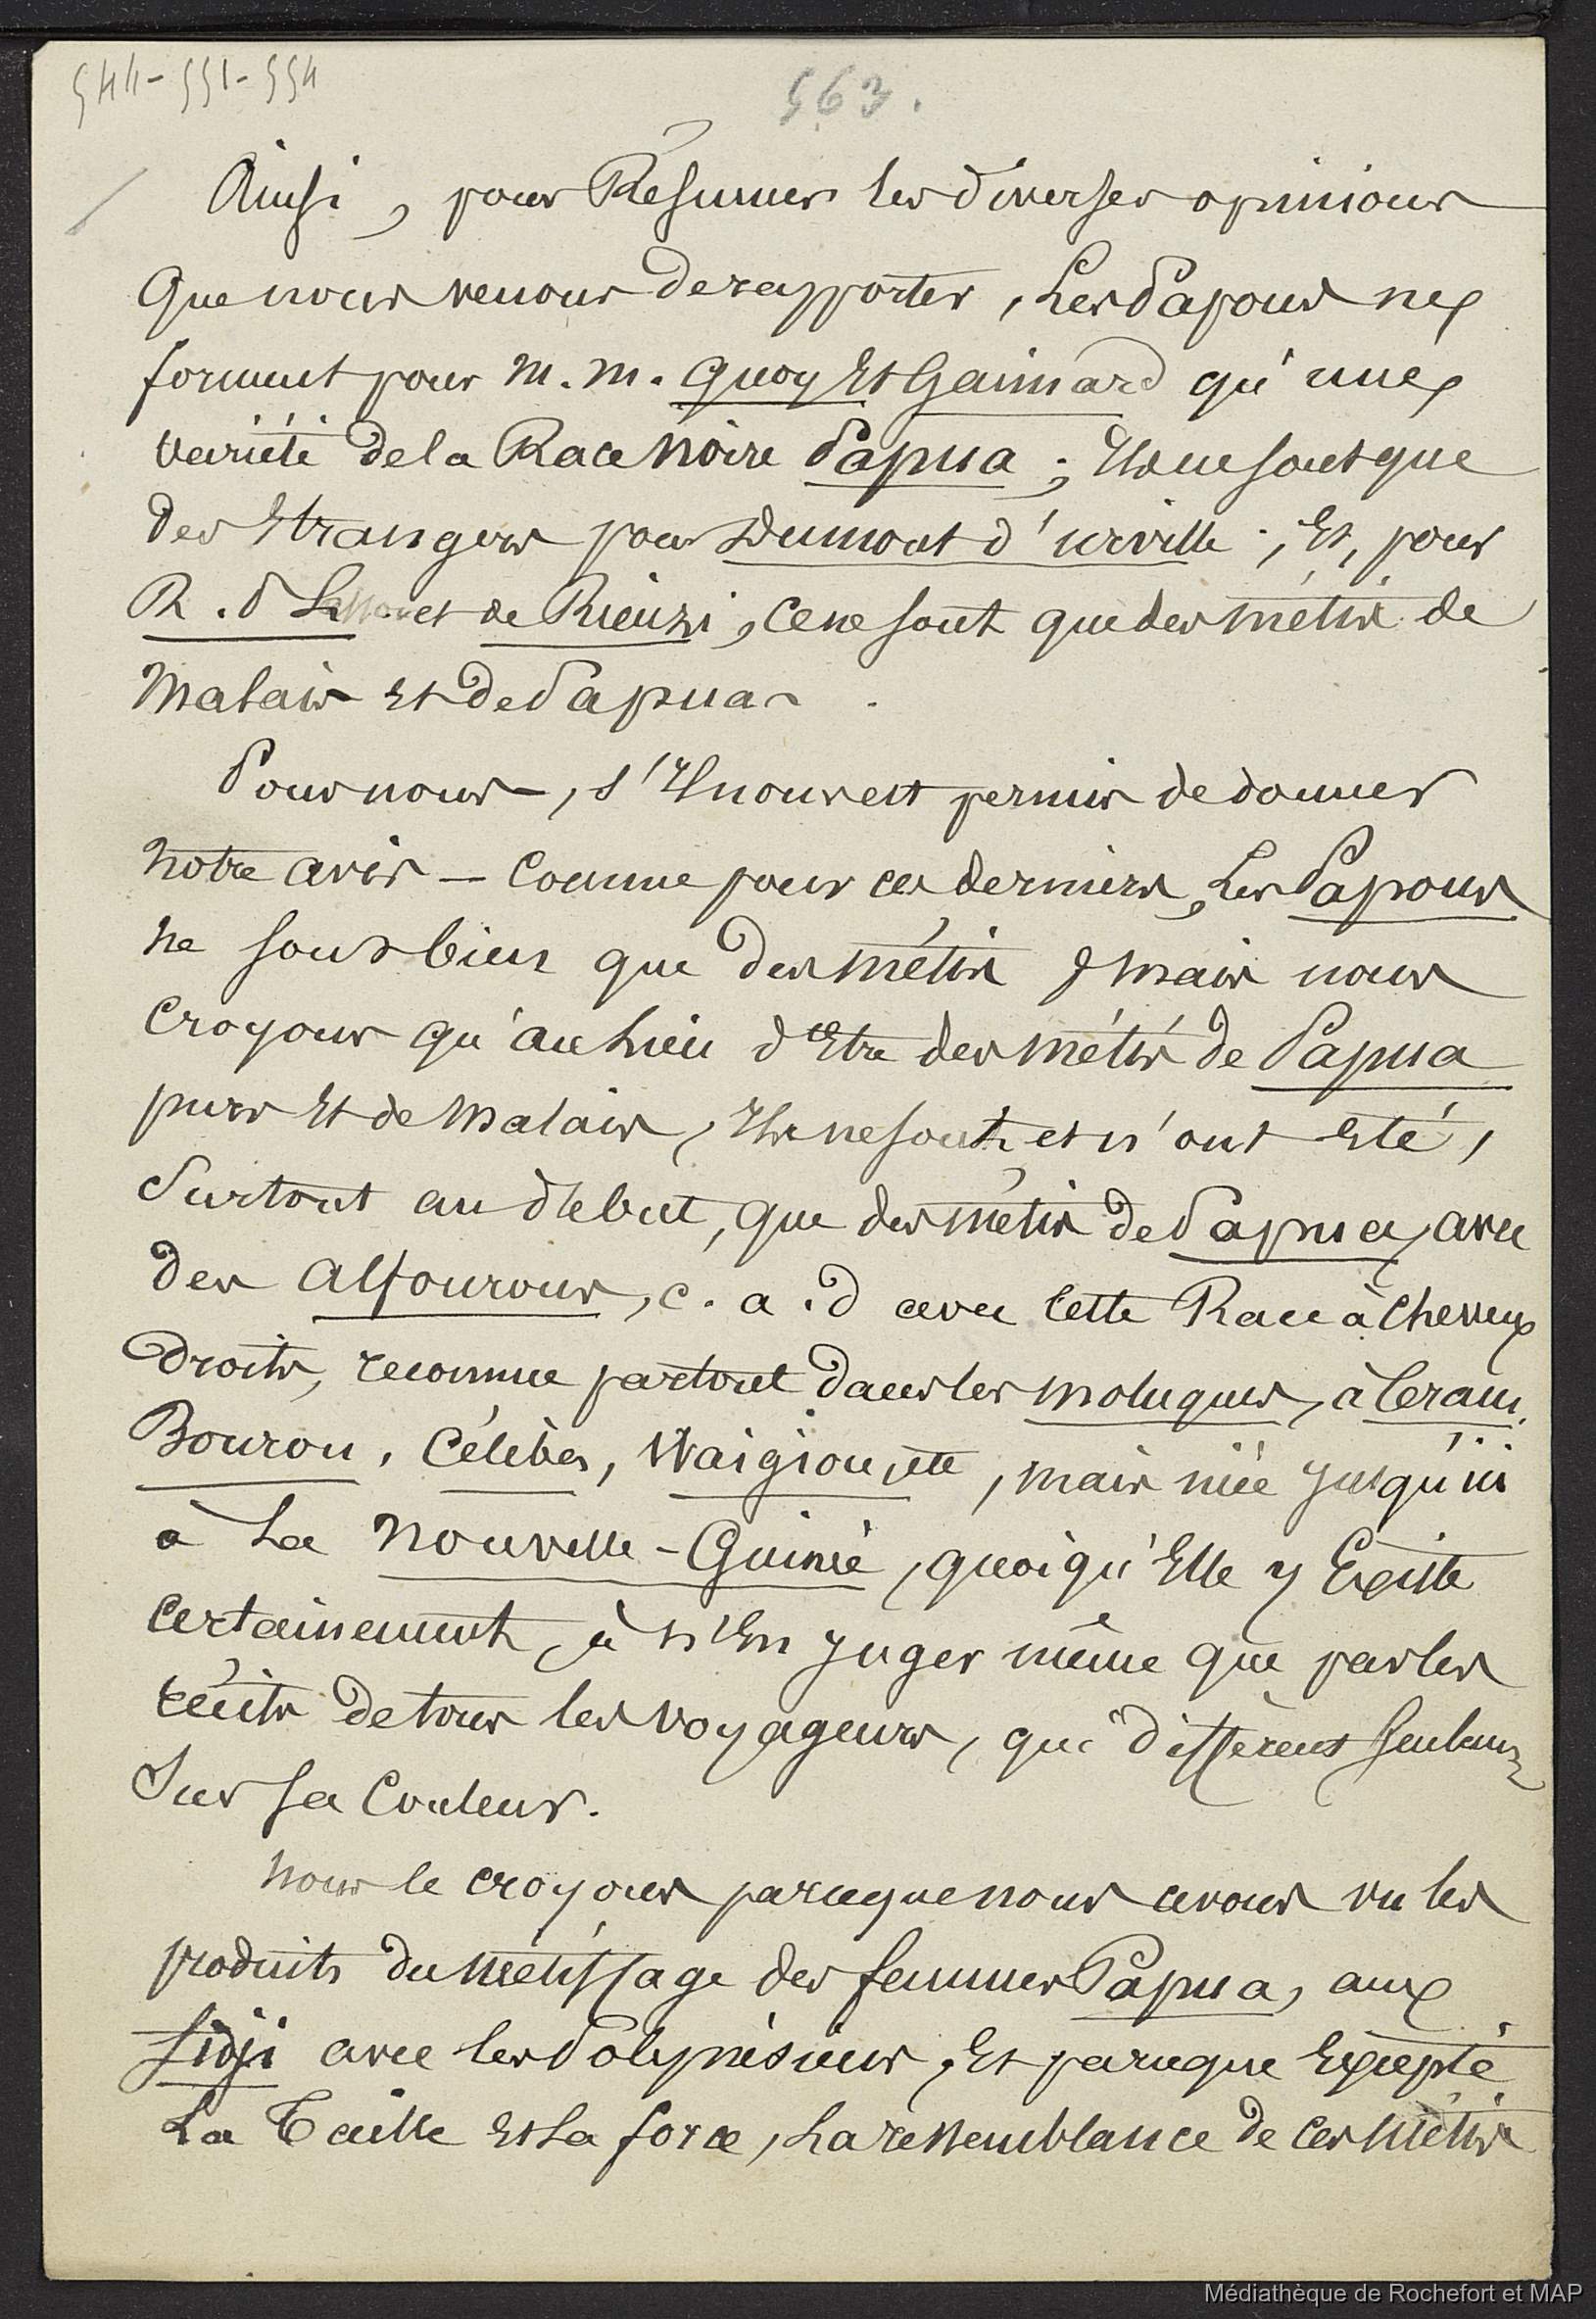 544-551-554
563.
Ainsi, pour Résumer les diverses opinions
que nous venons de rapporter, Les Papous ne
forment pour M. M. Quoy Et Gaimard qu'une
variété de la Race noire Papua ; Ils ne sont que
des Etrangers pour Dumont d'urville ; Et, pour
R. P. Lesson et de Rienzi, ce ne sont que des métis de
Malais Et de Papuas.
Pour nous, s'Il nous est permis de donner
notre avis — Comme pour ces derniers, Les Papous
ne sont bien que des métis ; mais nous
croyons qu'au Lieu d'Etre des métis de Papua
purs Et de Malais, Ils ne sont et n'ont Eté,
Surtout au début, que des métis de Papua, avec
des Alfourous, c. a. d avec Cette Race à Cheveux
Droits, reconnue partout dans les Moluques, à Ceram,
Bourou, Célèbes, Waigiou, etc, mais niée jusqu'ici
à La Nouvelle-Guinée, quoiqu'Elle y Existe
certainement, à n'En juger même que par les
récits de tous les voyageurs, qui diffèrent Seulemt
Sur Sa Couleur.
Nous le croyons parceque nous avons vu les
produits du métissage des femmes Papua, aux
fidji avec les Polynésiens, Et parceque Excepté
La Taille Et La force, La ressemblance de ces métis
Médiathèque de Rochefort et MAP